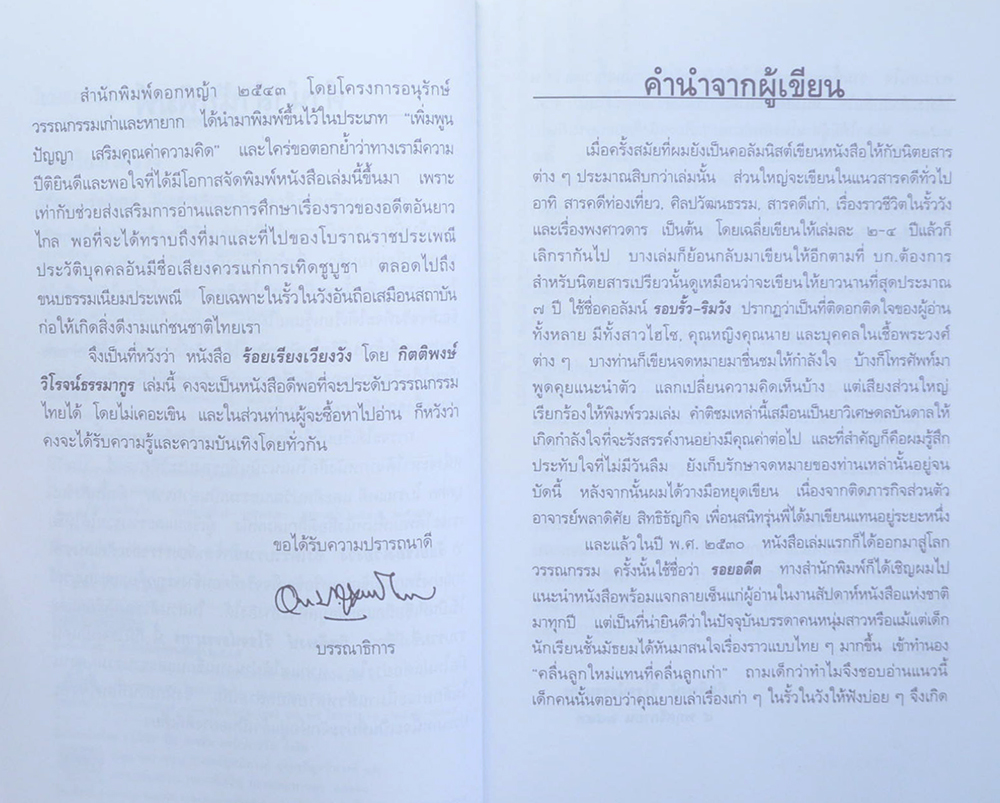 สำนักพิมพ์ดอกหญ้า ๒๕๔๓ โดยโครงการอนุรักษ์
วรรณกรรมเก่าและหายาก ได้นำมาพิมพ์ขึ้นไว้ในประเภท "เพิ่มพูน
ปัญญา เสริมคุณค่าความคิด" และใคร่ขอตอกย้ำว่าทางเรามีความ
ปีติยินดีและพอใจที่ได้มีโอกาสจัดพิมพ์หนังสือเล่มนี้ขึ้นมา เพราะ
เท่ากับช่วยส่งเสริมการอ่านและการศึกษาเรื่องราวของอดีตอันยาว
ไกล พอที่จะได้ทราบถึงที่มาและที่ไปของโบราณราชประเพณี
ประวัติบุคคลอันมีชื่อเสียงควรแก่การเทิดชูบูชา ตลอดไปถึง
ขนบธรรมเนียมประเพณี โดยเฉพาะในรั้วในวังอันถือเสมือนสถาบัน
ก่อให้เกิดสิ่งดีงามแก่ชนชาติไทยเรา
จึงเป็นที่หวังว่า หนังสือ ร้อยเรียงเวียงวัง โดย กิตติพงษ์
วิโรจน์ธรรมากูร เล่มนี้ คงจะเป็นหนังสือดีพอที่จะประดับวรรณกรรม
ไทยได้ โดยไม่เคอะเขิน และในส่วนท่านผู้จะซื้อหาไปอ่าน ก็หวังว่า
คงจะได้รับความรู้และความบันเทิงโดยทั่วกัน
ขอได้รับความปรารถนาดี
บรรณาธิการ
คำนำจากผู้เขียน
เมื่อครั้งสมัยที่ผมยังเป็นคอลัมนิสต์เขียนหนังสือให้กับนิตยสาร
ต่าง ๆ ประมาณสิบกว่าเล่มนั้น ส่วนใหญ่จะเขียนในแนวสารคดีทั่วไป
อาทิ สารคดีท่องเที่ยว, ศิลปวัฒนธรรม, สารคดีเก่า, เรื่องราวชีวิตในรั้ววัง
และเรื่องพงศาวดาร เป็นต้น โดยเฉลี่ยเขียนให้เล่มละ ๒-๔ ปีแล้วก็
เลิกรากันไป บางเล่มก็ย้อนกลับมาเขียนให้อีกตามที่ บก.ต้องการ
สำหรับนิตยสารเปรียวนั้นดูเหมือนว่าจะเขียนให้ยาวนานที่สุดประมาณ
๗ ปี ใช้ชื่อคอลัมน์ รอบรั้ว-ริมวัง ปรากฏว่าเป็นที่ติดอกติดใจของผู้อ่าน
ทั้งหลาย มีทั้งสาวไฮโซ, คุณหญิงคุณนาย และบุคคลในเชื้อพระวงศ์
ต่าง ๆ บางท่านก็เขียนจดหมายมาชื่นชมให้กำลังใจ บ้างก็โทรศัพท์มา
พูดคุยแนะนำตัว แลกเปลี่ยนความคิดเห็นบ้าง แต่เสียงส่วนใหญ่
เรียกร้องให้พิมพ์รวมเล่ม คำติชมเหล่านี้เสมือนเป็นยาวิเศษดลบันดาลให้
เกิดกำลังใจที่จะรังสรรค์งานอย่างมีคุณค่าต่อไป และที่สำคัญก็คือผมรู้สึก
ประทับใจที่ไม่มีวันลืม ยังเก็บรักษาจดหมายของท่านเหล่านั้นอยู่จน
บัดนี้ หลังจากนั้นผมได้วางมือหยุดเขียน เนื่องจากติดภารกิจส่วนตัว
อาจารย์พลาดิศัย สิทธิธัญกิจ เพื่อนสนิทรุ่นพี่ได้มาเขียนแทนอยู่ระยะหนึ่ง
และแล้วในปี พ.ศ. ๒๕๓๐ หนังสือเล่มแรกก็ได้ออกมาสู่โลก
วรรณกรรม ครั้งนั้นใช้ชื่อว่า รอยอดีต ทางสำนักพิมพ์ก็ได้เชิญผมไป
แนะนำหนังสือพร้อมแจกลายเซ็นแก่ผู้อ่านในงานสัปดาห์หนังสือแห่งชาติ
มาทุกปี แต่เป็นที่น่ายินดีว่าในปัจจุบันบรรดาคนหนุ่มสาวหรือแม้แต่เด็ก
นักเรียนชั้นมัธยมได้หันมาสนใจเรื่องราวแบบไทย ๆ มากขึ้น เข้าทำนอง
"คลื่นลูกใหม่แทนที่คลื่นลูกเก่า" ถามเด็กว่าทำไมจึงชอบอ่านแนวนี้
เด็กคนนั้นตอบว่าคุณยายเล่าเรื่องเก่า ๆ ในรั้วในวังให้ฟังบ่อย ๆ จึงเกิด